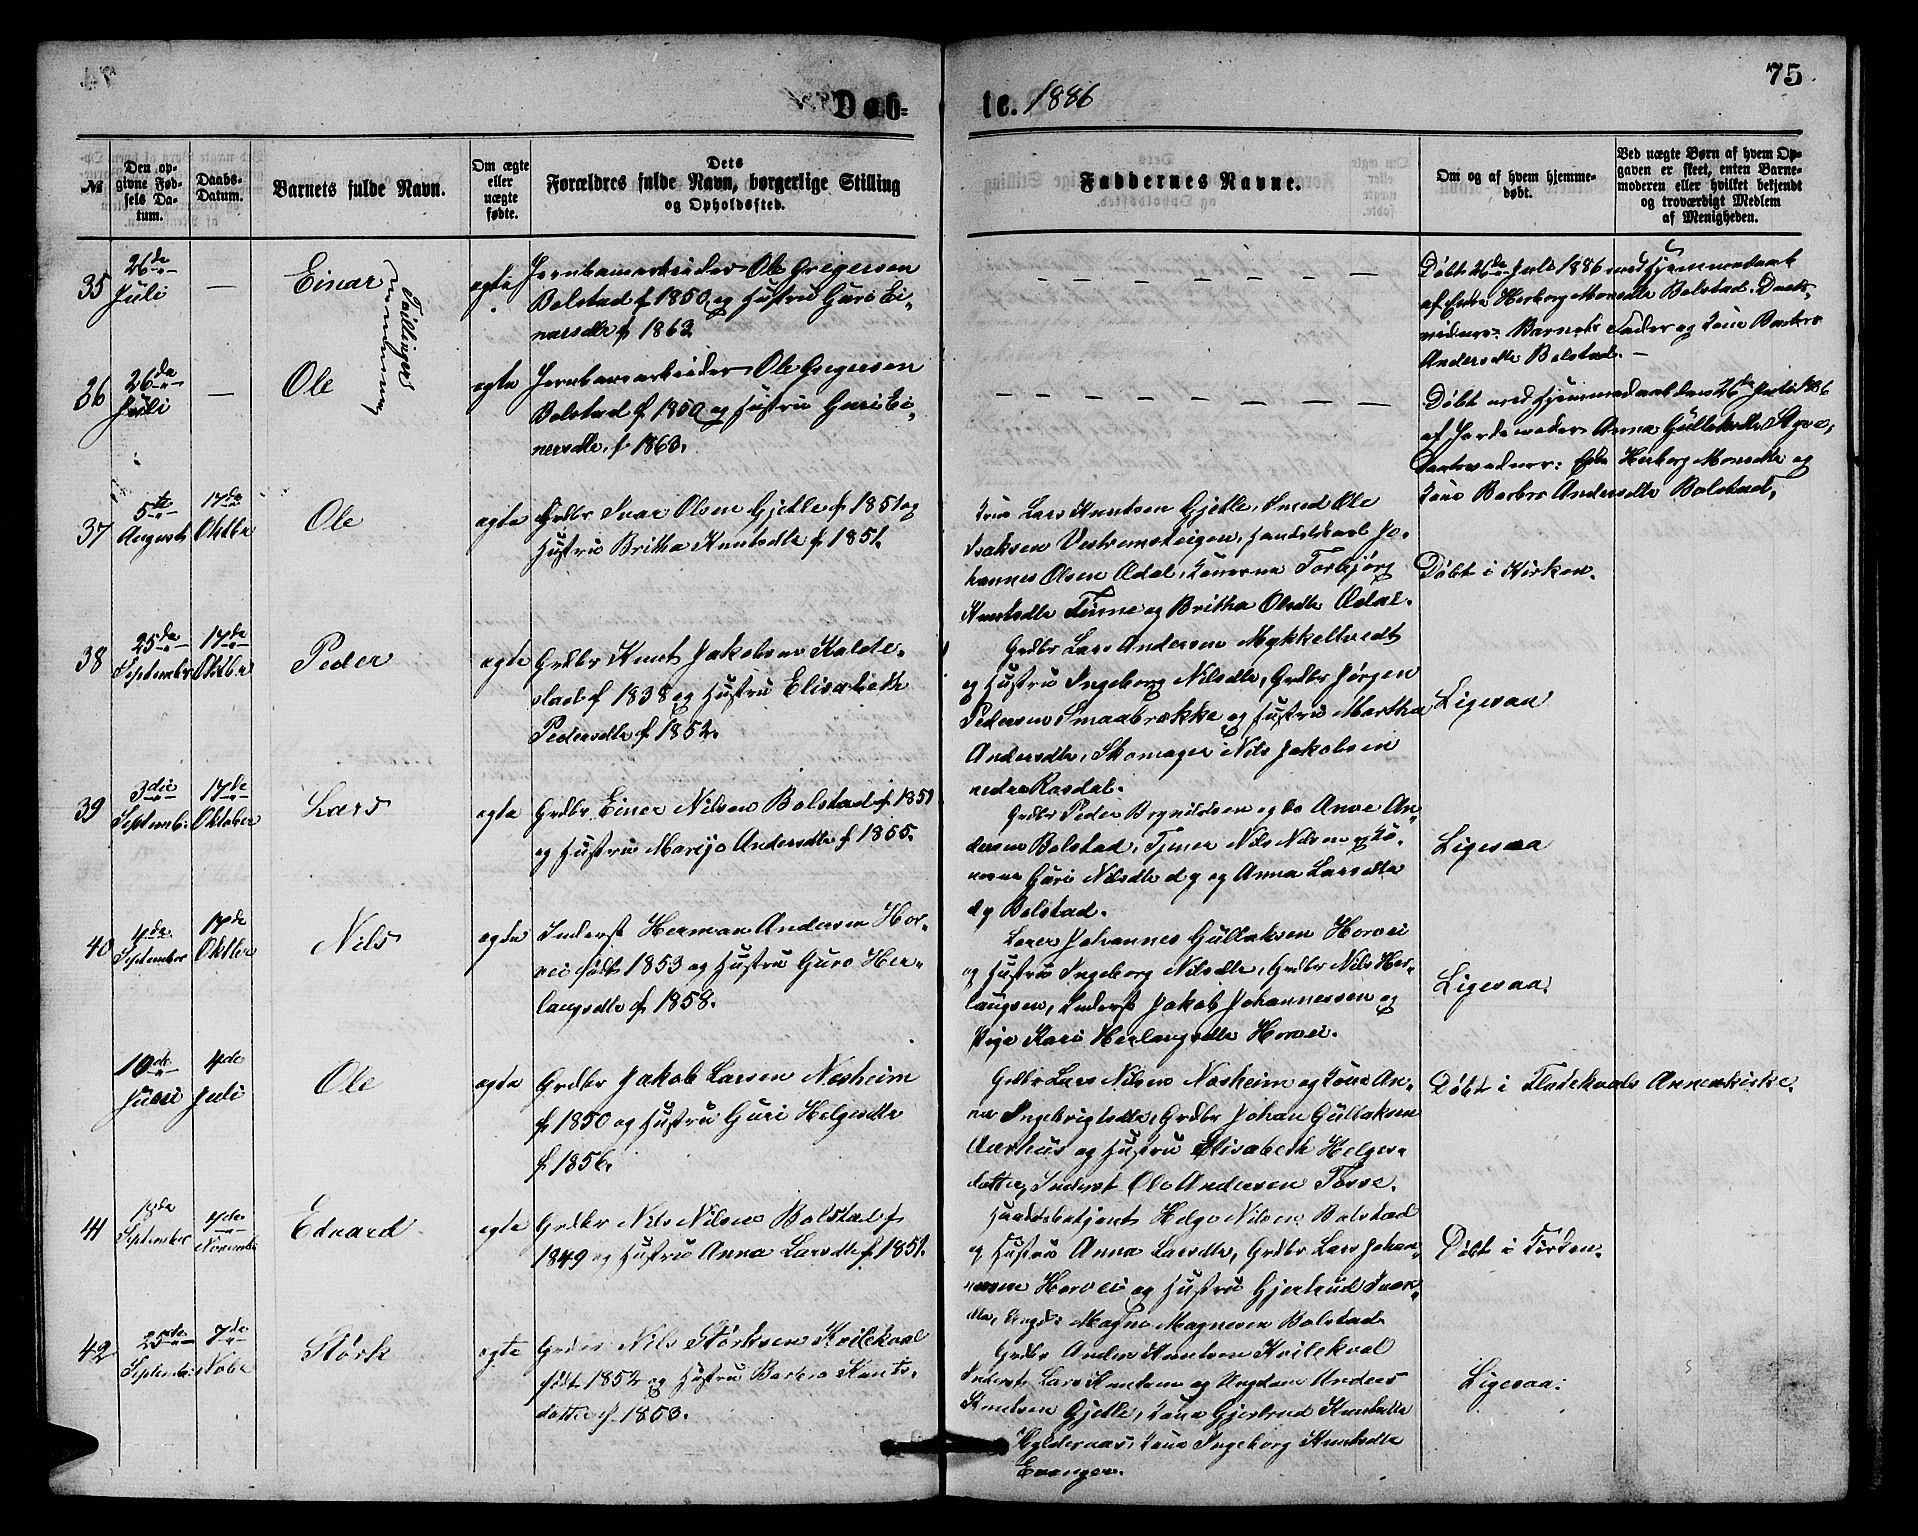 75
Døb=
te. 1886
№
Den op-
givne Fød-
sels Da-
tum.
Daabs-
Datum.
Barnets fulde Navn.
Om ægte
eller
uægte
fødte.
Dets
Forældres fulde Navn, borgerlige Stilling
og Opholdssted.
Faddernes Navne.
Om og af hvem hjemme-
døbt.
Ved uægte Børn af hvem Op-
gaven er skeet, enten Barne-
moderen eller hvilket bekjendt
og troværdigt Medlem
af Menigheden.
35
26de
Juli
—
Einar
Tvillinger
ægte
Jernbanearbeider Ole Gregersen
Bolstad f. 1850 og Hustru Guri Ei-
narsdtr f. 1863
— — — — — — — —
Døbt 26de Juli 1886 med Hjemmedaab
af Enke Herborg Monsdtr Bolstad. Daabs-
vidner: Barnets Fader og Kone Barbro
Andersdtr Bolstad. —
36
26de
Juli
—
Ole
ægte
Jernbanearbeider Ole Gregersen
Bolstad f. 1850 og Hustru Guri Ei-
narsdtr. f. 1863.
— — — — — — — —
Døbt med Hjemmedaab den 26de Juli 1886
af Jordemoder Anna Gullaksdtr
Daabsvidner: Enke Herborg Monsdtr og
Kone Barbro Andersdtr Bolstad.
37
5te
August
17de
Oktbr
Ole
ægte
Grdbr Ivar Olsen Gjelle f. 1851 og
Hustru Britha Knutsdtr f. 1851.
Lars Knutsen Gjelle, Smed Ole
Isaksen Vestremsteigen, Handelskarl Jo-
hannes Olsen Ødal, Konerne Torbjørg
Knutsdtr Finne og Britha Olsdtr Ødal.
Døbt i Kirken.
38
25de
September
17de
Oktbr
Peder
ægte
Grdbr Knut Jakobsen Kalde-
stad f. 1838 og Hustru Elisabeth
Pedersdtr f. 1852.
Grdbr Lars Andersen Mykkeltvedt
og Hustru Ingeborg Nilsdtr, Grdbr Jørgen
Pedersen Smaabrække og Hustru Martha
Andersdtr, Skomager Nils Jakobsen
nedre Rasdal.
Ligesaa
39
3die
Septemb:
17de
Oktober
Lars
ægte
Grdbr Einar Nilsen Bolstad f. 1851
og Hustru Marijo Andersdtr f. 1855.
Grdbr Peder Brynildsen og do Anve An-
dersen Bolstad, Tjener Nils Nilsen og Ko-
nerne Guri Nilsdtr og Anna Larsdtr
Bolstad.
Ligesaa
40
4de
September
17de
Oktbr
Nils
ægte
Inderst Herman Andersen Hor-
vei født 1853 og Hustru Guro Her-
langsdtr f. 1858.
Lærer Johannes Gullaksen Horvei
og Hustru Ingeborg Nilsdtr, Grdbr Nils Her-
laugsen, Inderst Jakob Johannessen og
Pige Kari Herlaugsdtr Horvei.
Ligesaa.
10de
Juni
4de
Juli
Ole
ægte
Grdbr Jakob Larsen Nesheim
f. 1850 og Hustru Guri Helgesdtr
f. 1856.
Grdbr Lars Nilsen Nesheim og Kone An-
na Ingebrigtsdtr, Grdbr Johan Gullaksen
Aarhus og Hustru Elisabeth Helges-
datter, Inderst Ole Andersen Fosse.
Døbt i Flatekvals Annexkirke.
41
18de
September
7de
Novemb:
Edvard
ægte
Grdbr Nils Nilsen Bolstad f.
1849 og Hustru Anna Larsdtr f. 1851.
Helge Nilsen Bolstad
og Hustru Anna Larsdtr, Grdbr Lars Johan-
nesen Horvei og Hustru Gjertrud Ivars-
dtr, Ungd: Magne Magnesen Bolstad.
Døbt i Kirken.
42
25de
Septemb:
7de
Novbr
Størk
ægte
Grdbr Nils Størksen Kvilekval
født 1852 og Hustru Barbro Knuts-
datter f. 1853.
Grdbr Anders Knutsen Kvilekval
Inderst Lars Knutsen og Ungdom Anders
Knutsen Gjelle, Kone Gjertrud Knutsdtr
Hyldernaas, Kone Ingeborg Knutsdtr
Evanger.
Ligesaa: